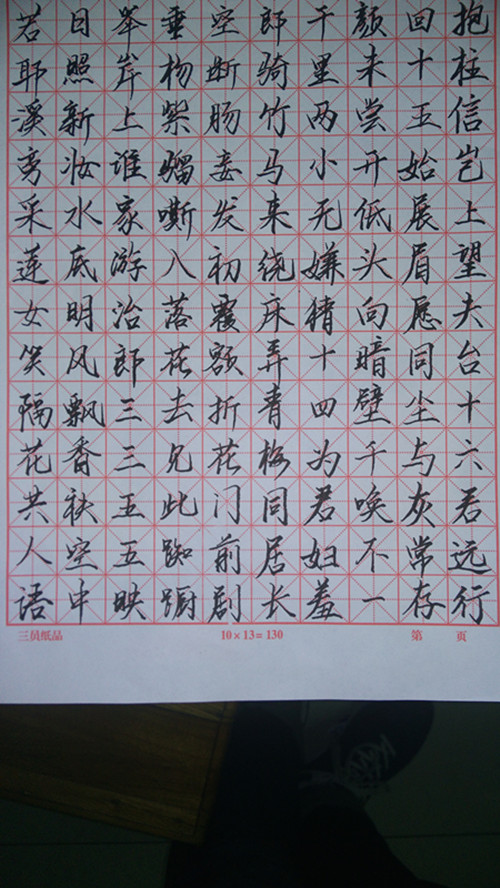 若耶溪旁采莲女笑隔花共人语
日照新妆水底明风飘香袂空中
举岸上谁家游冶郎三三五五映
垂杨紫骝嘶入落花去见此踟蹰
空断肠妾发初覆额折花门前剧
郎骑竹马来绕床弄青梅同居长
干里两小无嫌猜十四为君妇羞
颜未尝开低头向暗壁千唤不一
回十五始展眉愿同尘与灰常存
抱柱信岂上望夫台十六君远行
三员纸品 10×13=130 第 页